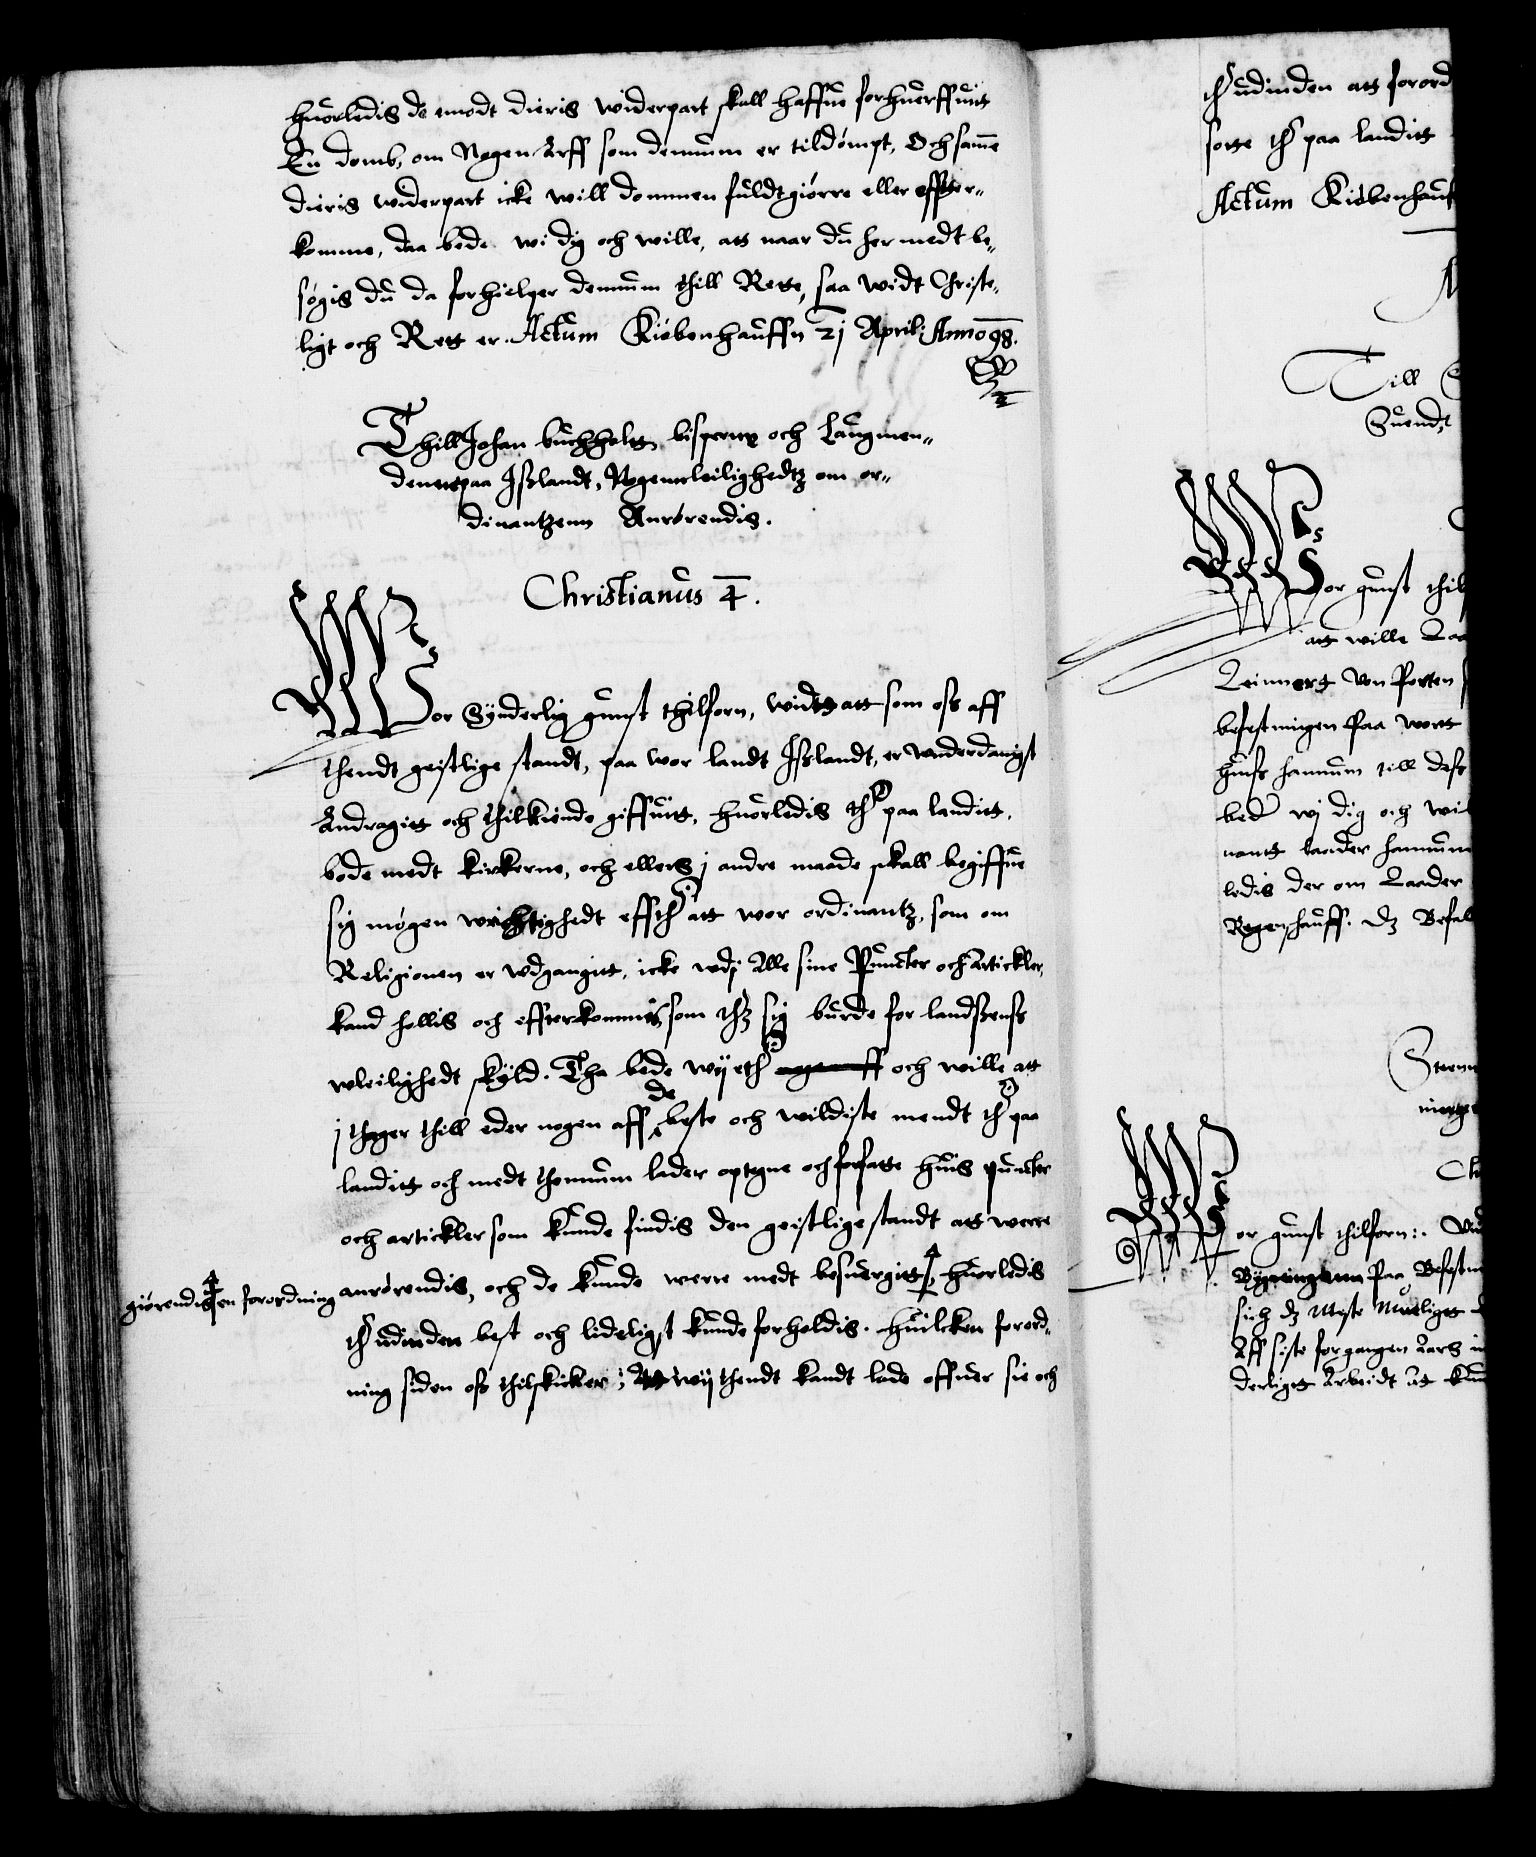 huorledis de emodt dieris widerpart skall haffue forhuerffuitt
En domb, om Nogen Arff som dennum er tildømpt, Och samme
dieris widerpart icke will dommen fuldtgiørre eller effter„
komme, daa bede wi dig och wille, att naar du her medt be„
søgis du da forhielper dennum thill Rette, saa widt Christe„
ligt och Rett er. Actum Kiøbenhauffn 21 April: Anno 98.
Thill Johan buchholtt, bisperne och Laugmen„
denne paa Ißlandt, Nogen leilighedtz om or„
dinantzenn Anrørendis.
Christianus 4.
Wor Synderlig gunst thilforn, widtt att som oss aff
thendt geistlige standt, paa wor landt Ißlandt, er vnderdanigst
Andragitt och thilkiende giffuitt, huorledis ther paa landitt,
bode medt kirkerne, och ellers j andre maade skall begiffue
sig mogen wrichtighedt effther att wor ordinantz, som om
Religionen er wdgangitt, icke wdj Alle sine Puncter och Artickler,
kand hollis och effterkommis som thz sig burde for landßenß
wleilighedt skyld. Tha bede wij ether och wille att
j thager thill eder nogen aff de beste och wildiste mendt ther paa
landitt och medt thennum lader optegne och forfatte huis puncter
och artickler som kunde findis den geistlige standt att werre
anrørendis, och de kunde werre medt besuergitt, huorledis
giørendis en forordning
ther udinden best och lideligst kunde forholdis. Huilcken forord„
ning siden oss thilskicker, Att wij thendt kandt lade offuer sie och
ther udinden att forord
sette ther paa landitt
Actum Kiøbenhauf
Till
Suend
Wor gunst thil
att wille Laa
Leinnert von Porten
befestningen paa wort
huiss hannum till dess
bede wj dig och wil
nantt lader hannum
ledis der om Laader
Regenschauff. dz Befal
Steen
Wor gunst thilforn:. Vid
Bygningenn Paa Befestn
sich dz Meste Mueligt
Aff siste forgangen Aars
derligt Arbeidt at kun